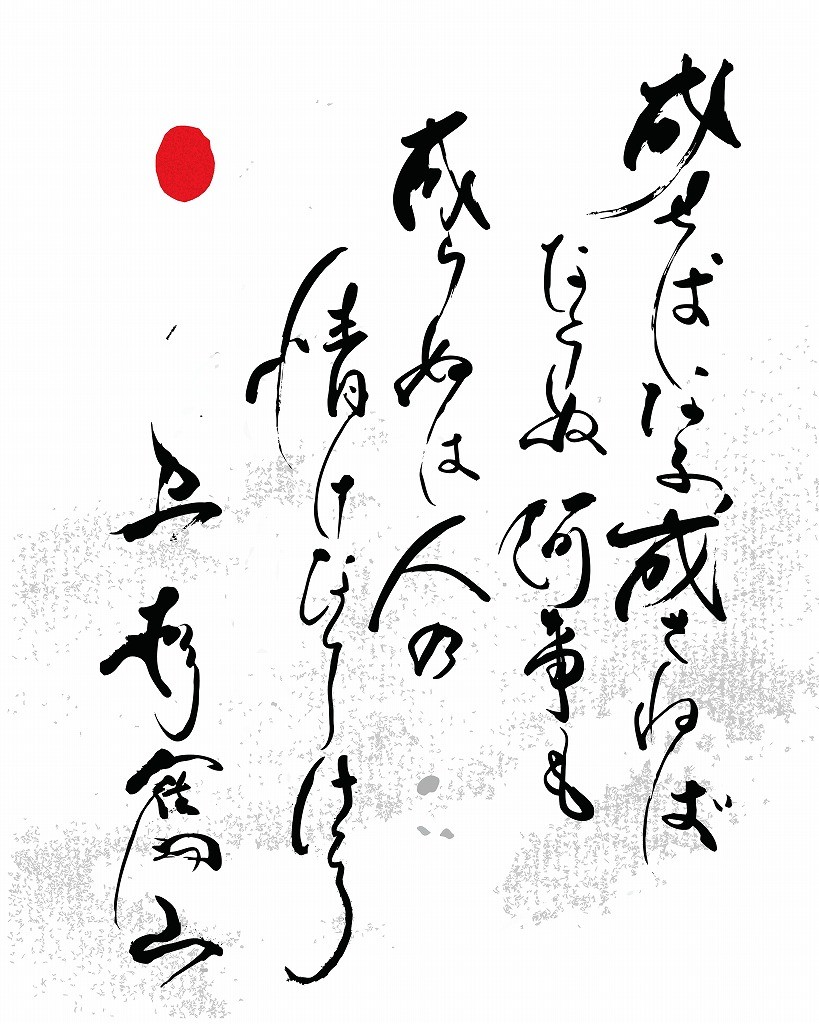 成せばなる成さねば
ならぬ何事も
成らぬは人の
情けなし
上杉鷹山